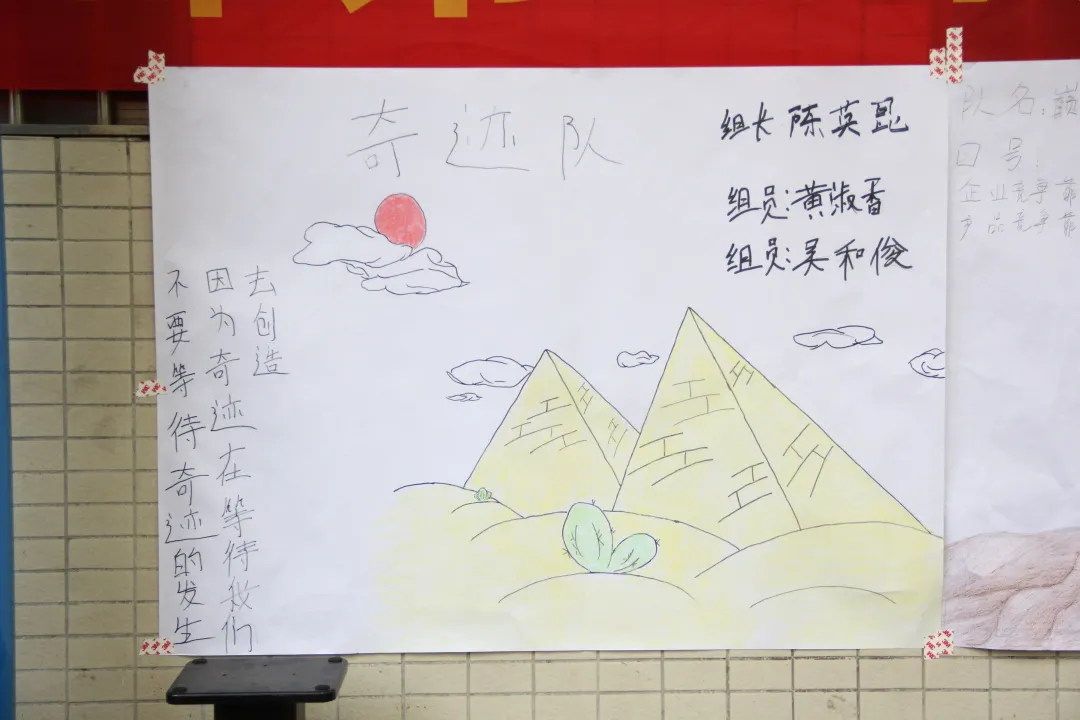 奇迹队
组长 陈英昆
组员:黄淑香
组员:吴和俊
不要等待奇迹的发生
因为奇迹在等待我们
去创造
队名:巅
口号:
企业竞争靠
产品竞争靠